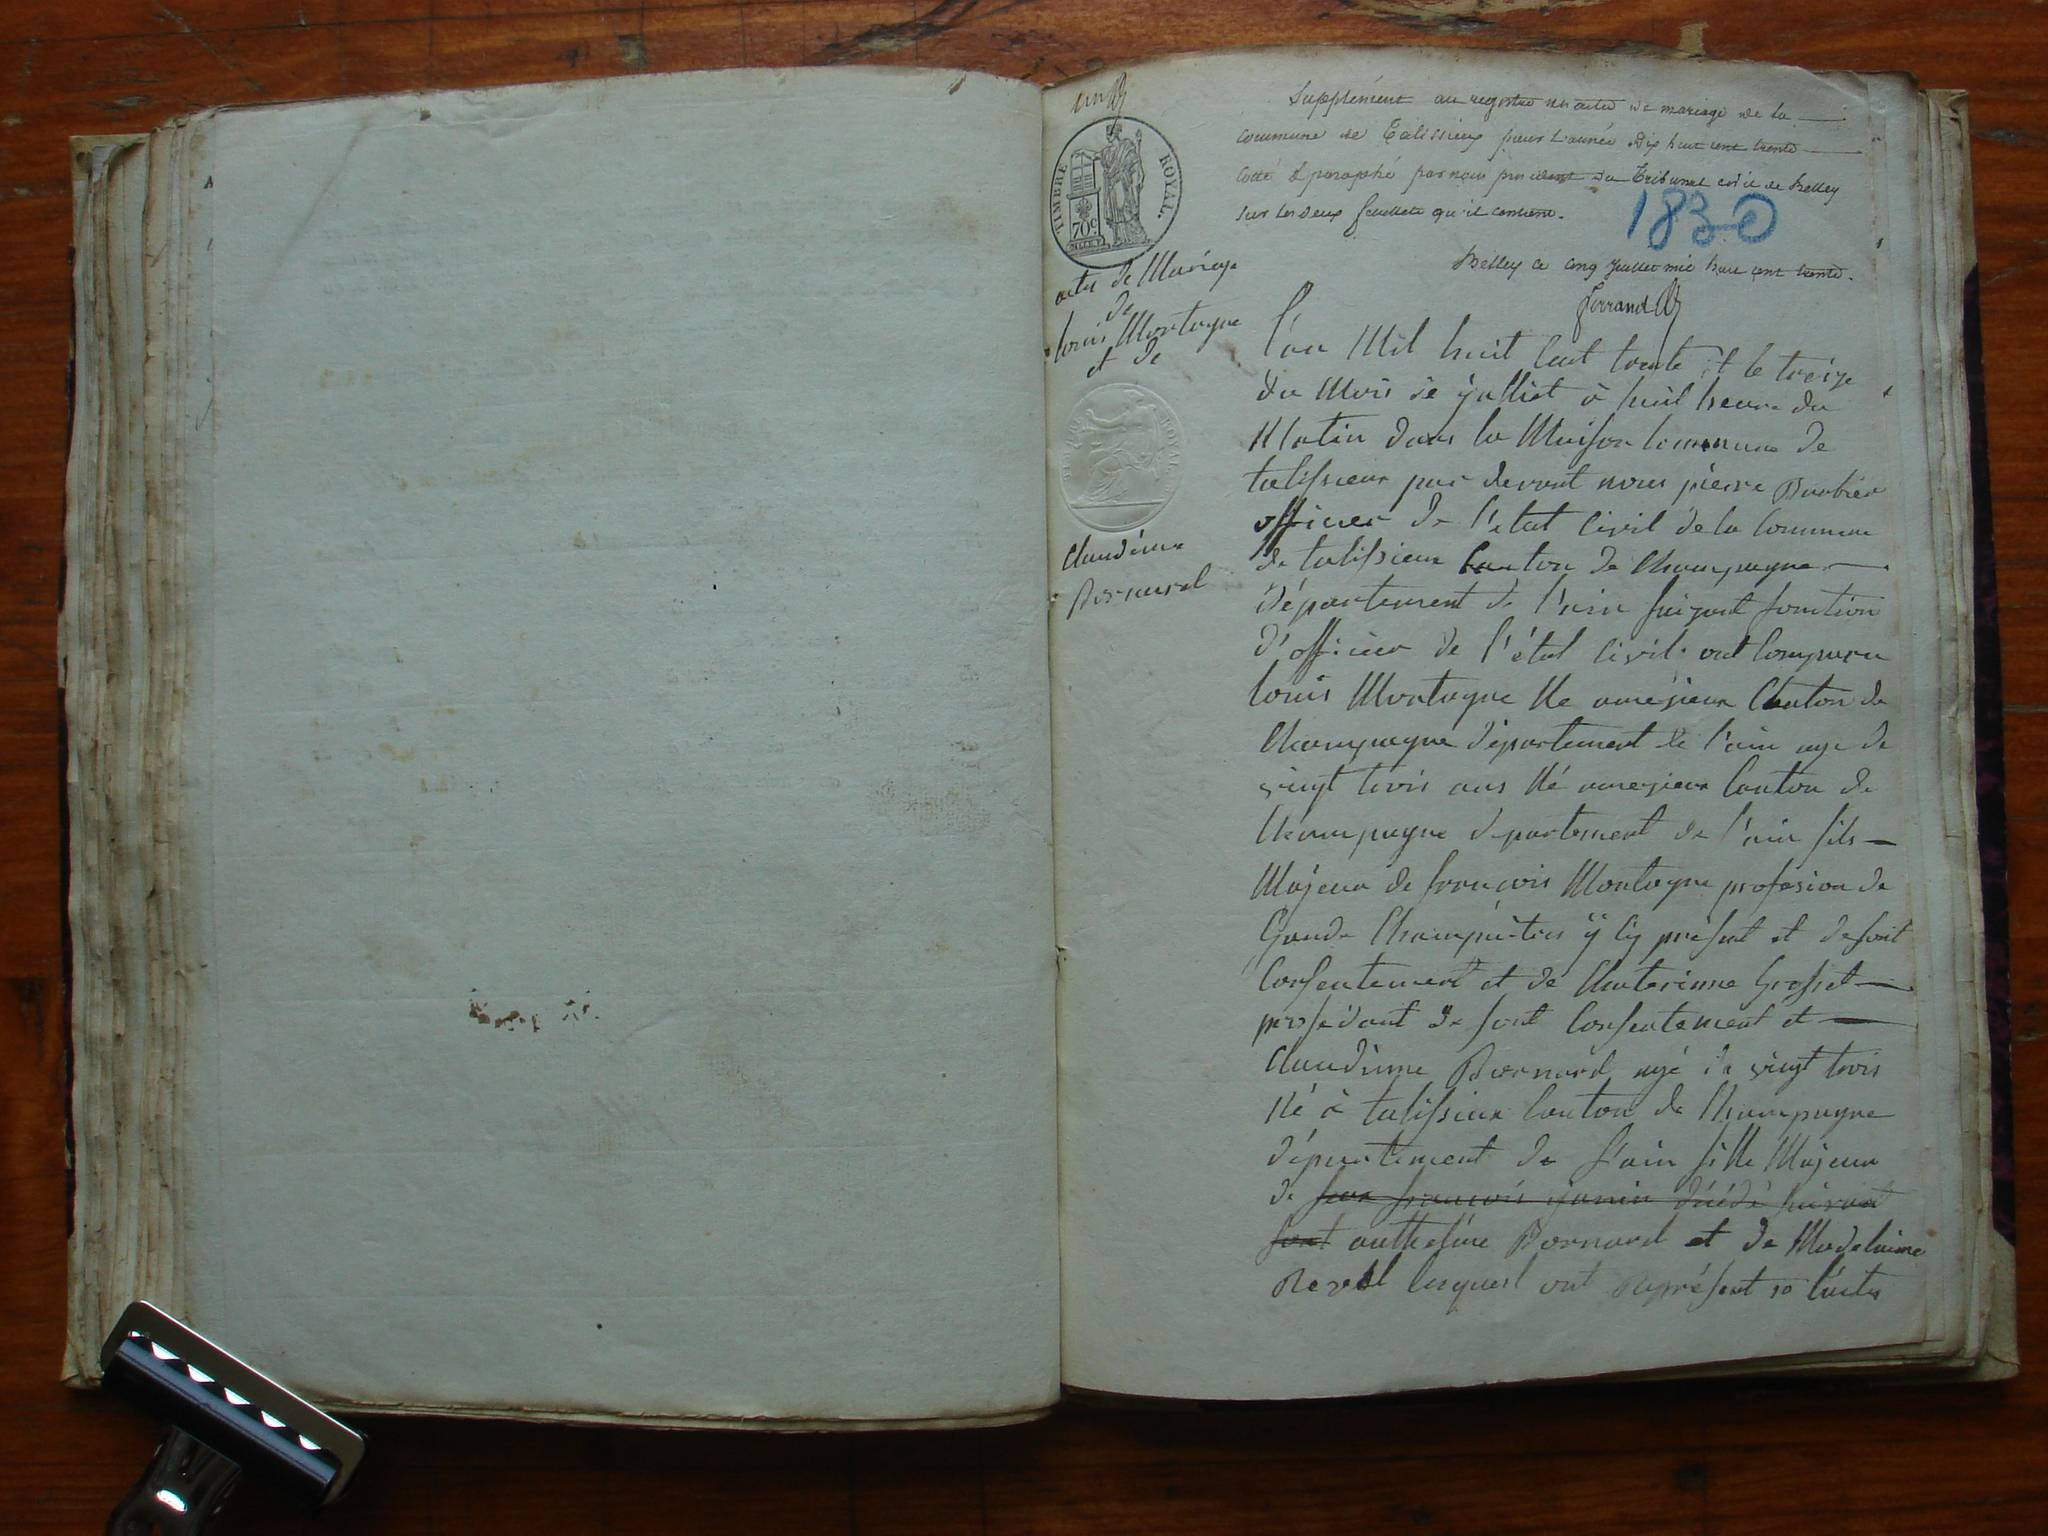 un
Supplément au registre des actes de mariage de la
commune de Talissieu pour l'année dix huit cent trente
Cotté & paraphé par nous président du Tribunal civil de Belley
sur les deux feuillets qu'il contient.
1830
Belley ce cinq juillet mil huit cent trente.
Ferrand
TIMBRE ROYAL.
70c.
acte de Mariage
de
louis Montagne
et de
Claudinne
Bernard
l'an Mil huit Cent trente et le treize
du Mois de julliet à huit heure du
Matin dans la Maison Commune de
talissieux par devant nous pierre Barbier
officier de l'etat Civil de la Commune
de talissieux Canton de Champagne
département de l'ain faizant fonction
d'officier de l'état Civil ont Comparu
louis Montagne Ne amezieux Canton de
Champagne département de l'ain age de
vingt trois ans Né amezieux Canton de
Champagne departement de l'ain fils
Majeur de françois Montagne profesion de
Garde Champêtre present et de sont
Consentement et de Chaterinne Grosset
prosedant de sont Consentement et
Claudinne Bernard agé de vingt trois
Né à talissieux Canton de Champagne
département de l'ain fille Majeur
de feux françois janin décédé
sont anthelme Bernard et de Madelainne
Revel lesquesl ont Représent